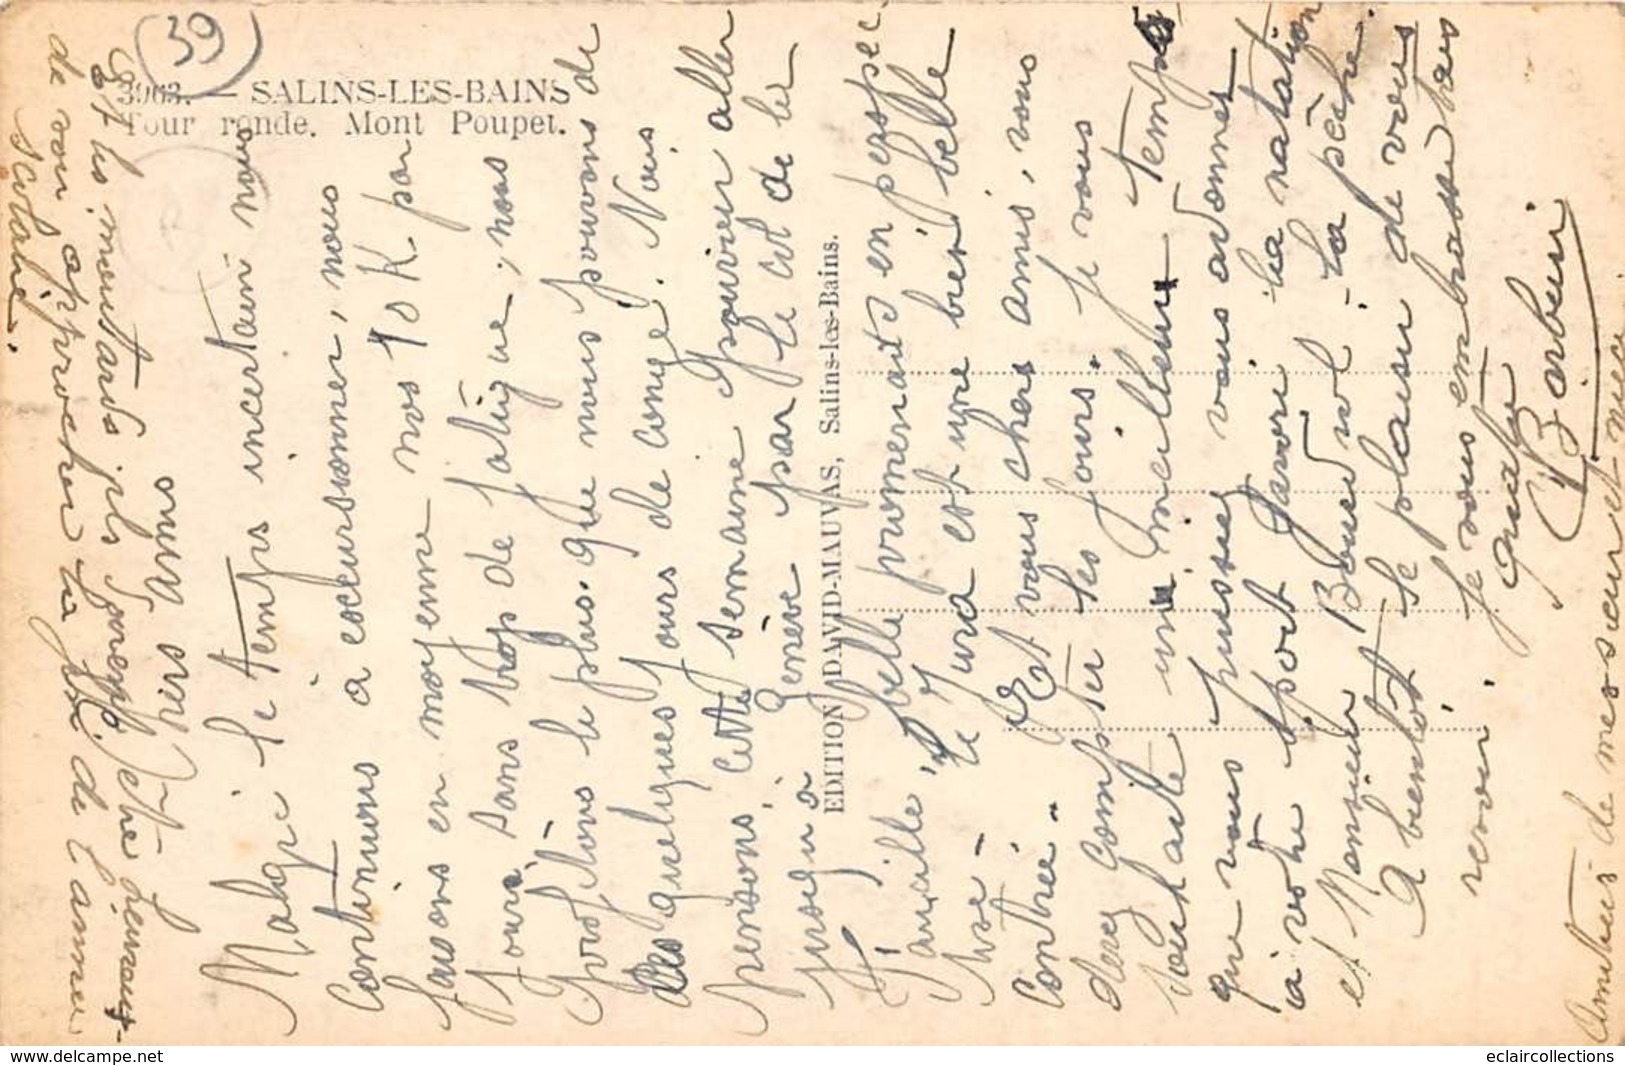 39
3963. — SALINS-LES-BAINS
Tour ronde. Mont Poupet.
EDITION DAVID-MAUVAS, Salins-les-Bains.
Chers amis
Malgré le temps incertain nous
continuons à excursionner, nous
faisons en moyenne nos 70 K par
jours, sans trop de fatigue, nous
profitons le plus que nous pouvons de
ces quelques jours de congé. Nous
pensons cette semaine pouvoir aller
jusqu'à Genève par le col de la
Faucille, belle promenade en perspec
tive - le Jura est une bien belle
contrée.
Et vous chers amis, vous
devez compter les jours. Je vous
souhaite un meilleur temps
que vous puissiez vous adonner
à votre sport favori la natation
et Monsieur la pêche.
A bientôt le plaisir de vous
revoir.
Je vous embrasse tous
Barbier
Amitiés de mes sœur et nièce
Et les moutards
de voir approcher la fin de l'année
scolaire.